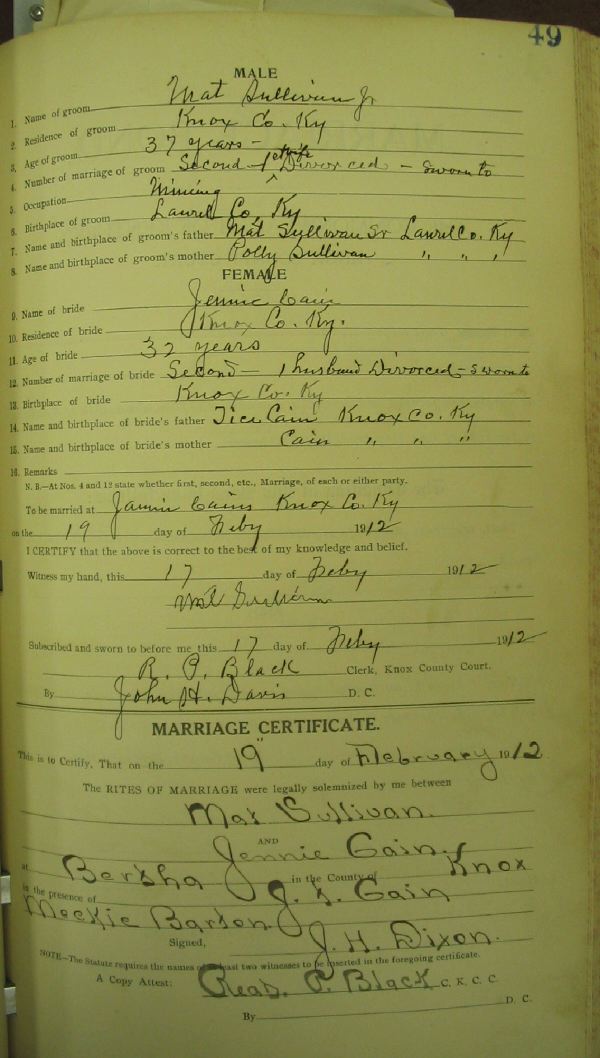 49
MALE
1. Name of groom Mat Sullivan Jr
2. Residence of groom Knox Co. Ky
3. Age of groom 37 years -
4. Number of marriage of groom Second - 1st wife Divorced - Sworn to
5. Occupation Mining
6. Birthplace of groom Laurel Co, Ky
7. Name and birthplace of groom's father Mat Sullivan Sr Laurel Co. Ky
8. Name and birthplace of groom's mother Polly Sullivan " " "
FEMALE
9. Name of bride Jennie Cain
10. Residence of bride Knox Co. Ky.
11. Age of bride 32 years
12. Number of marriage of bride Second - 1 husband Divorced - Sworn to
13. Birthplace of bride Knox Co. Ky
14. Name and birthplace of bride's father Tice Cain Knox Co. Ky
15. Name and birthplace of bride's mother Cain " " "
16. Remarks
N. B.—At Nos. 4 and 12 state whether first, second, etc., Marriage, of each or either party.
To be married at Cains Knox Co. Ky
on the 19 day of Feby 1912
I CERTIFY that the above is correct to the best of my knowledge and belief.
Witness my hand, this 17 day of Feby 1912
Mat Sullivan
Subscribed and sworn to before me this 17 day of Feby 1912
R. P. Black Clerk, Knox County Court.
By John H. Davis D. C.
MARRIAGE CERTIFICATE.
This is to Certify, That on the 19" day of February 1912
The RITES OF MARRIAGE were legally solemnized by me between
Mat Sullivan.
AND
Jennie Cain.
at Bertha in the County of Knox
in the presence of J. T. Cain
Meckie Barton
Signed, J. H. Dixon.
NOTE—The Statute requires the names of at least two witnesses to be inserted in the foregoing certificate.
A Copy Attest: P. Black C. K. C. C.
By D. C.